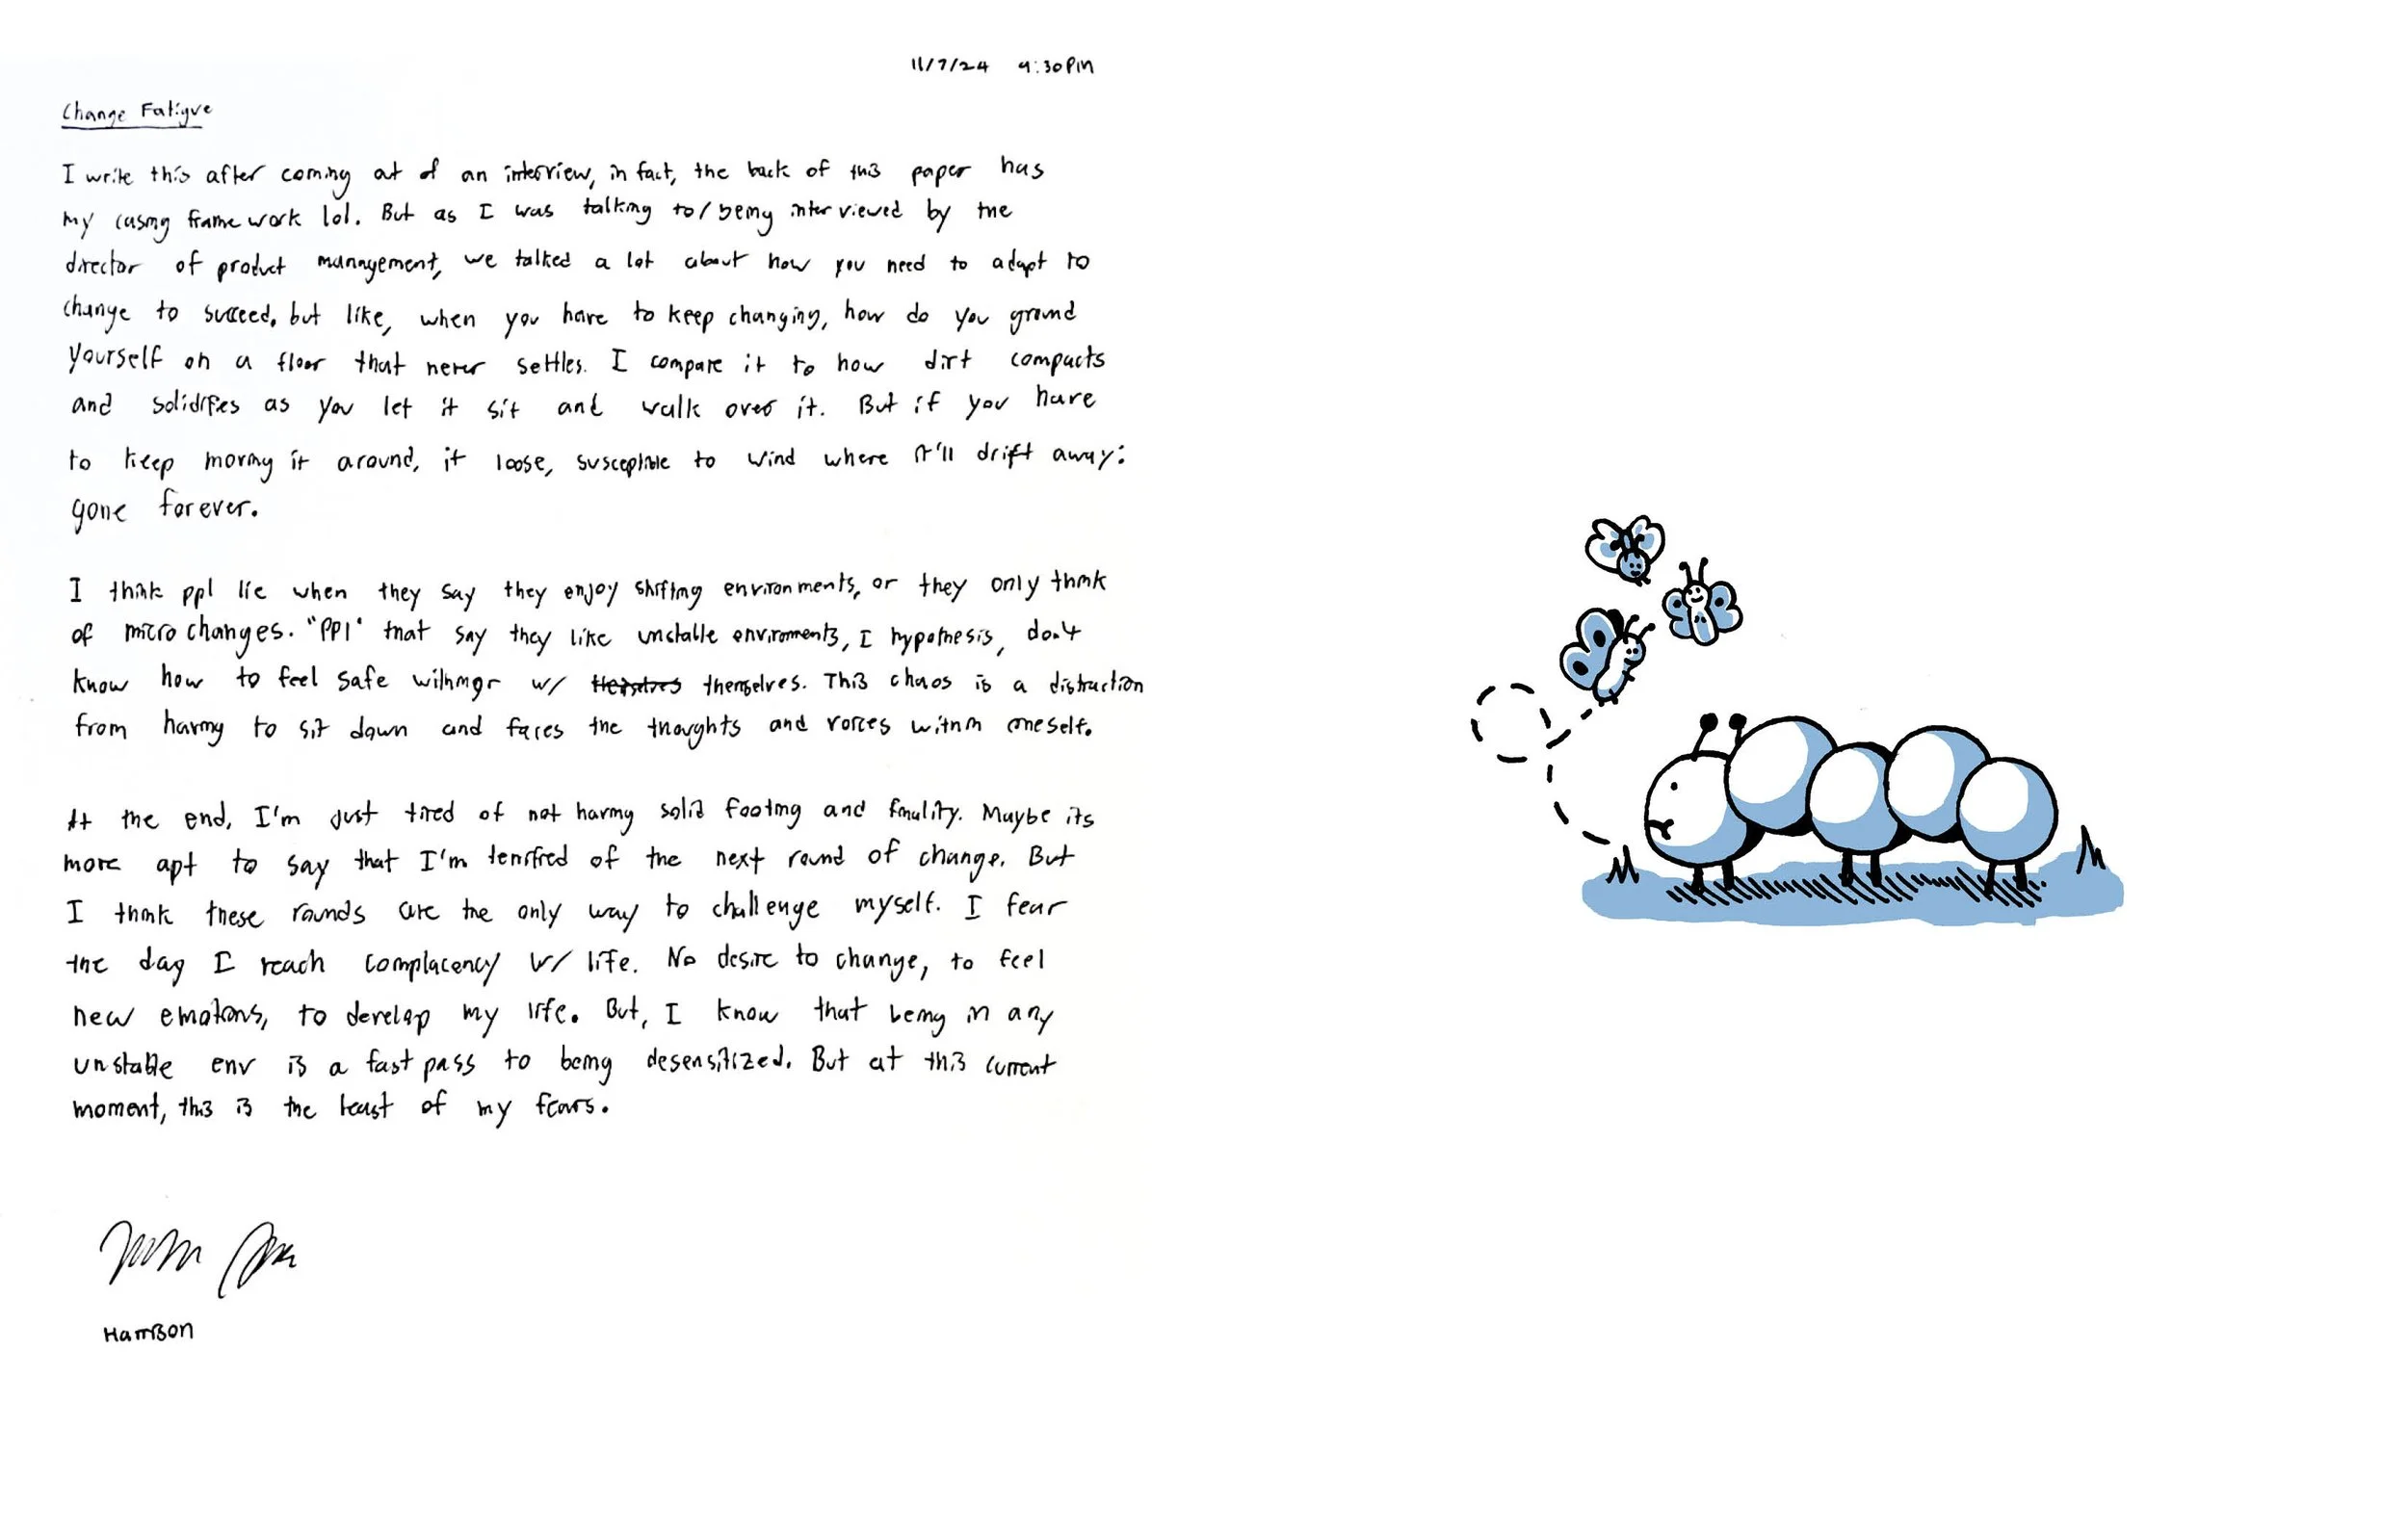 11/7/24 9:30PM
Change Fatigue
I write this after coming out of an interview, in fact, the back of this paper has
my casing framework lol. But as I was talking to/being interviewed by the
director of product management, we talked a lot about how you need to adapt to
change to succeed, but like, when you have to keep changing, how do you ground
yourself on a floor that never settles. I compare it to how dirt compacts
and solidifies as you let it sit and walk over it. But if you have
to keep moving it around, it loose, susceptible to wind where it'll drift away:
gone forever.
I think ppl lie when they say they enjoy shifting environments, or they only think
of micro changes. "PPl" that say they like unstable enviroments, I hypothesis, don't
know how to feel safe w/ themselves. This chaos is a distraction
from having to sit down and faces the thoughts and voices within oneself.
At the end, I'm just tired of not having solid footing and finality. Maybe its
more apt to say that I'm terrified of the next round of change. But
I think these rounds are the only way to challenge myself. I fear
the day I reach complacency w/ life. No desire to change, to feel
new emotions, to develop my life. But, I know that being in any
unstable env is a fast pass to being desensitized. But at this current
moment, this is the least of my fears.
Harrison